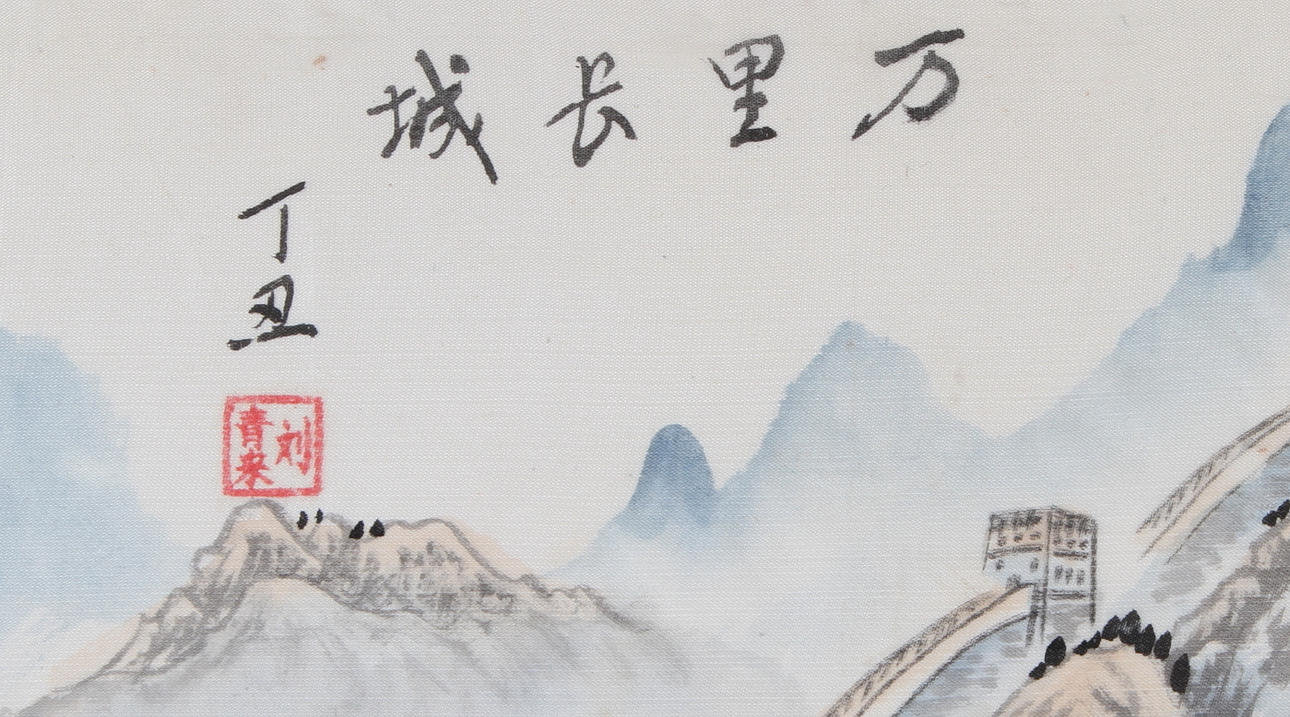 万里长城
丁丑
刘青来